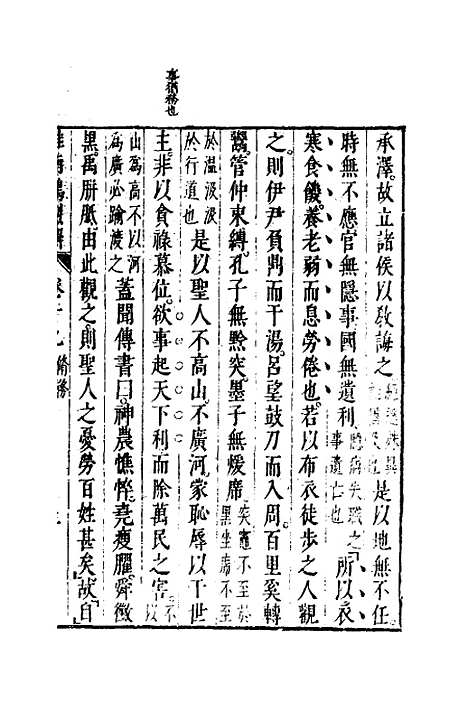 事猶務也
承澤。故立諸侯以教誨之 是以地無不任
時無不應官無隱事國無遺利 所以衣
寒食饑養老弱而息勞倦也。若以布衣徒步之人觀
之則伊尹負鼎而干湯。呂望鼓刀而入周。百里奚轉
鬻。管仲束縛。孔子無黔突。墨子無煖席。突竈不至於黑坐席不至
於溫汲汲於行道也 是以聖人不高山。不廣河。家恥辱以干世
主。非以貪祿慕位。欲事起天下利而除萬民之害 不以
山為高不以河為廣必踰渡之 蓋聞傳書曰。神農憔悴。堯瘦臞。舜黴
黑。禹胼胝。由此觀之則聖人之憂勞百姓甚矣。故自
卷十九 脩務